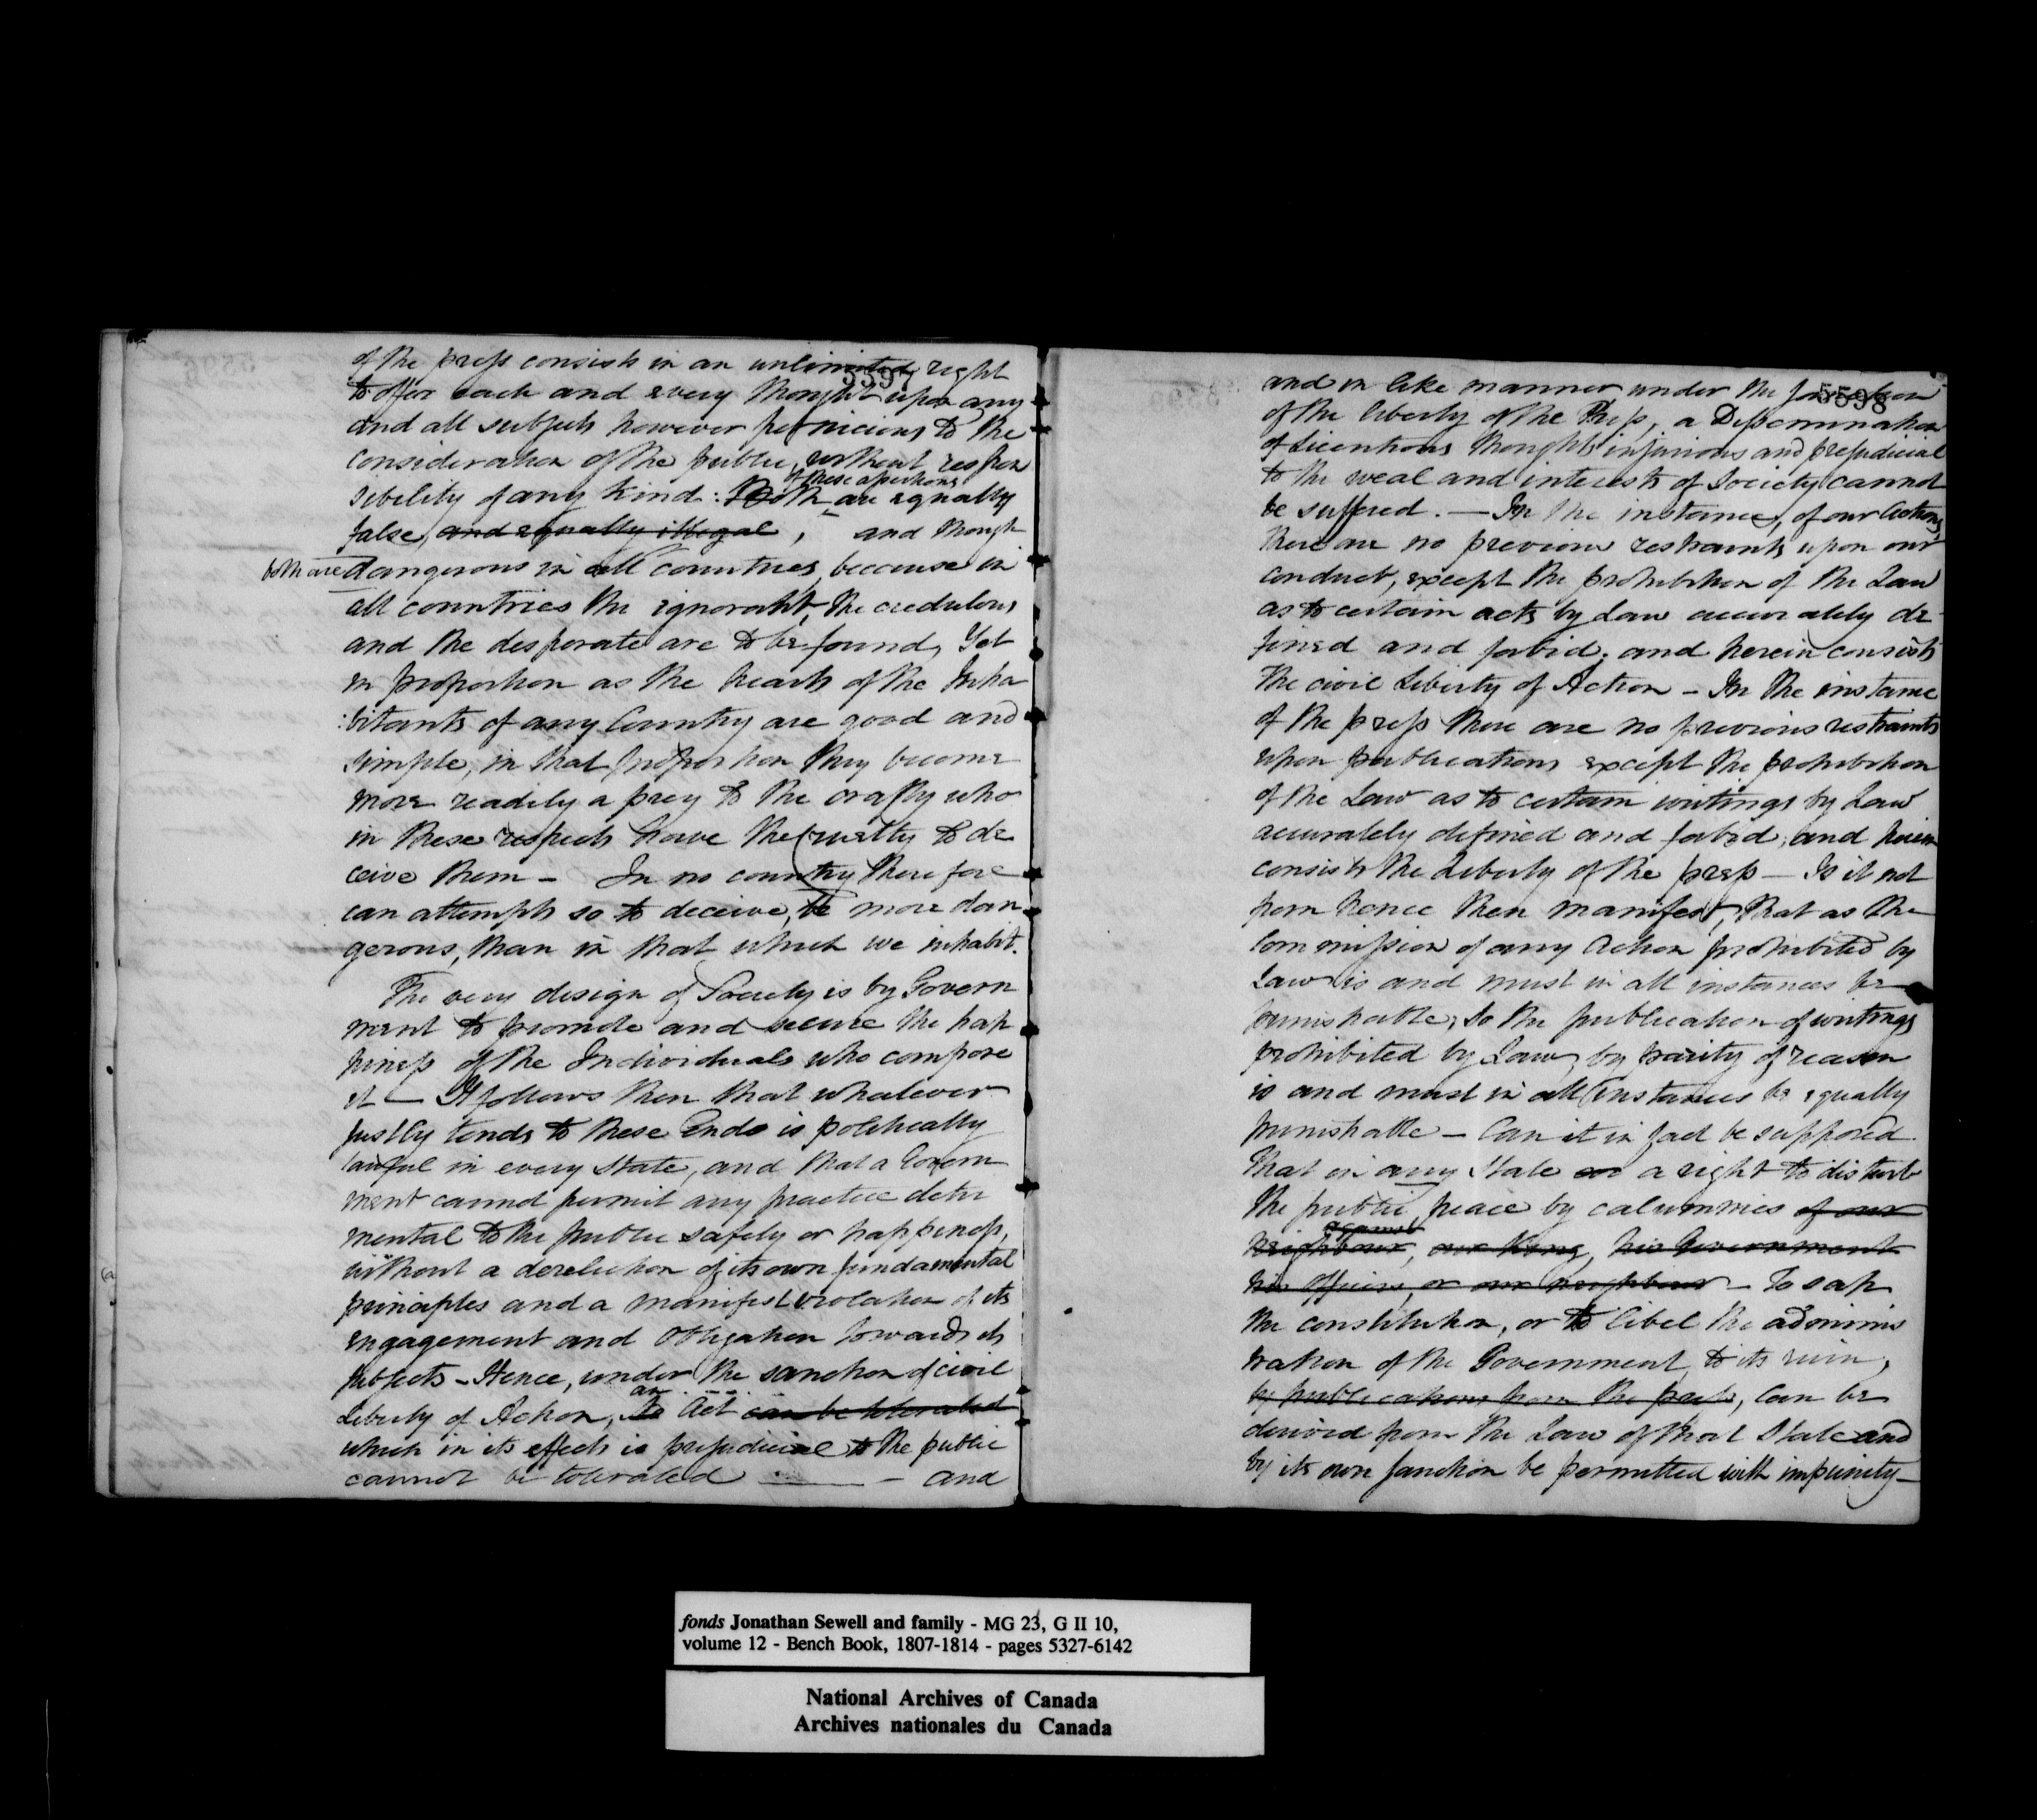 5597
of the press consists in an unlimited right
to offer each and every thought upon any
and all subjects however pernicious to the
consideration of the public, without respon
sibility of any kind: Both of these assertions are equally
false, and equally illegal, and though
both are dangerous in all countries, because in
all countries the ignorant, the credulous
and the desperate are to be found, Yet
in proportion as the hearts of the Inha
:bitants of any Country are good and
simple, in that proportion they become
more readily a prey to the crafty who
in these respects have the cruelty to de
ceive them - In no country therefore
can attempts so to deceive, be more dan
gerous, than in that which we inhabit.
The very design of Society is by Govern
ment to promote and secure the hap
piness of the Individuals who compose
it - It follows then that whatever
justly tends to these Ends is politically
lawful in every State, and that a Govern
ment cannot permit any practice detri
mental to the public safety or happiness,
without a dereliction of its own fundamental
principles and a manifest violation of its
engagement and Obligation towards its
subjects - Hence, under the sanction of civil
Liberty of Action, an Act can be tolerated
which in its effects is prejudicial to the public
cannot be tolerated - and
5598
and in like manner under the
of the liberty of the Press, a Dissemination
of Licentious thoughts injurious and prejudicial
to the weal and interests of Society cannot
be suffered. - In the instance, of our Actions,
there are no previous restraints upon our
conduct, except the prohibition of the Law
as to certain acts by Law accurately de
fined and forbid; and herein consists
the civil Liberty of Action - In the instance
of the press there are no previous restraints
upon publications except the prohibition
of the Law as to certain writings by Law
accurately defined and forbid; and herein
consists the Liberty of the press - Is it not
from hence then manifest, that as the
Commission of any Action prohibited by
Law is and must in all instances be
punishable, so the publication of writings
prohibited by Law, by parity of reason
is and must in all instances be equally
punishable - Can it in fact be supposed
that in any State a right to disturb
the public peace by calumnies of our
against
neighbour, our King, his Government
his Officers, or our neighbour - To sap
the constitution, or to libel the adminis
tration of the Government to its ruin,
by publications from the press, can be
derived from the Law of that State and
by its own sanction be permitted with impunity -
fonds Jonathan Sewell and family - MG 23, G II 10,
volume 12 - Bench Book, 1807-1814 - pages 5327-6142
National Archives of Canada
Archives nationales du Canada